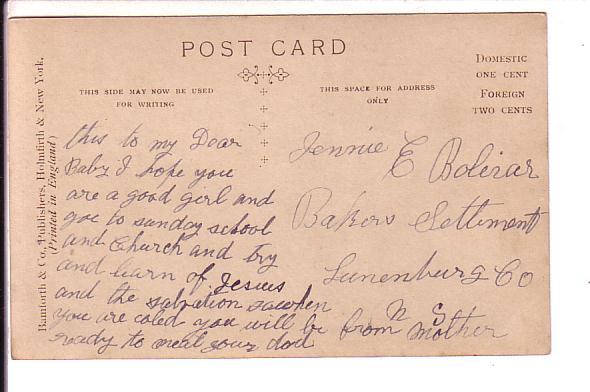 POST CARD
THIS SIDE MAY NOW BE USED
FOR WRITING
THIS SPACE FOR ADDRESS
ONLY
DOMESTIC
ONE CENT
FOREIGN
TWO CENTS
Bamforth & Co., Publishers, Holmfirth & New York.
(Printed in England)
this to my Dear
Baby I hope you
are a good girl and
goe to sunday school
and Church and try
and learn of Jesius
and the salvation so when
you are coled you will be
ready to meat your dod
Jennie E Bolivar
Bakers Settlment
Lunenburg Co
N S
from mother